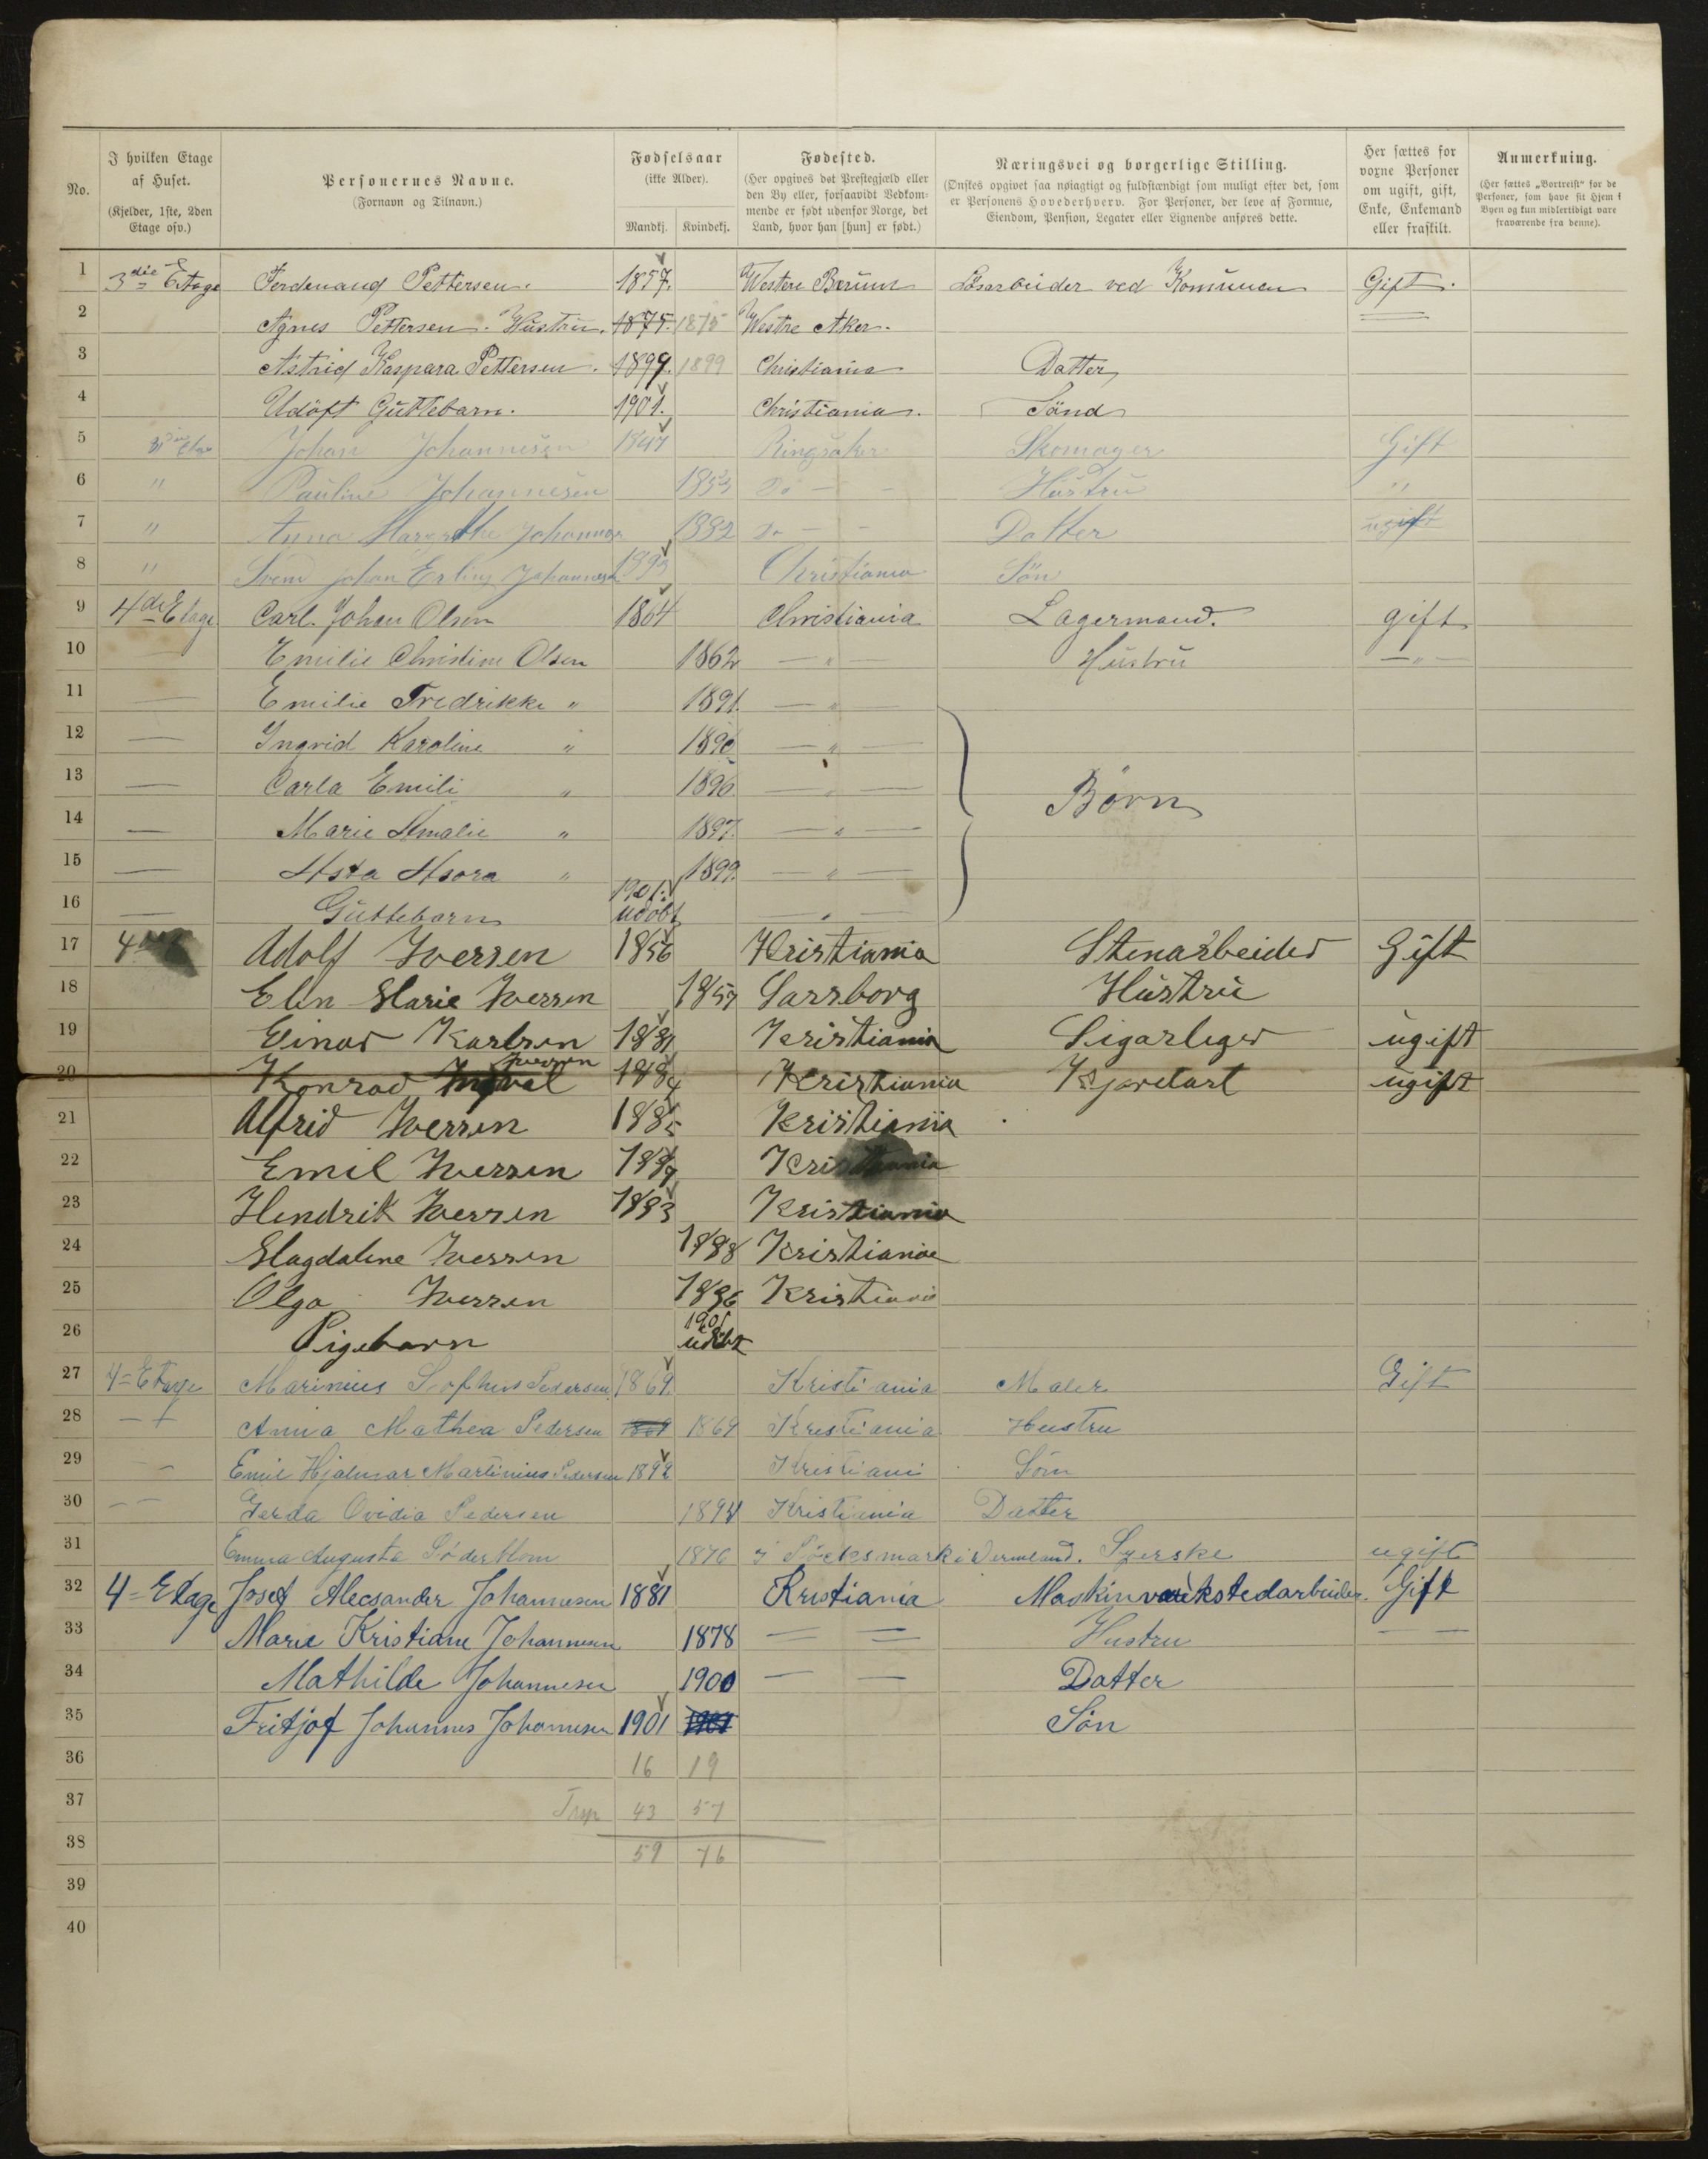 No.
I hvilken Etage af Huset. (Kjelder, 1ste, 2den Etage osv.)
Personernes Navne. (Fornavn og Tilnavn.)
Fødselsaar (ikke Alder). Mandkj. Kvindekj.
Fødested. (Her opgives det Prestegjæld eller den By eller, forsaavidt Vedkommende er født udenfor Norge, det Land, hvor han [hun] er født.)
Næringsvei og borgerlige Stilling. (Ønskes opgivet saa nøiagtigt og fuldstændigt som muligt efter det, som er Personens Hovederhverv. For Personer, der leve af Formue, Eiendom, Pension, Legater eller Lignende anføres dette.
Her sættes for voxne Personer om ugift, gift, Enke, Enkemand eller fraskilt.
Anmerkning. (Her sættes „Bortreist" for de Personer, som have sit Hjem i Byen og kun midlertidigt vare fraværende fra denne).
1 3die Etage Ferdenand Pettersen. 1857. Westere Berum Løsarbeider ved Komunen Gift.
2 Agnes Pettersen. Hustru. 1875. 1875 Westre Aker.
3 Astrid Kaspara Pettersen. 1899. 1899 Christiania Datter
4 Udöft Guttebarn. 1901. Christiania. Sönd
5 3die Etage Johan Johannesen 1847 Ringsaker Skomager Gift
6 " Pauline Johannesen 1853 Do — — Hustru "
7 " Anna Margrethe Johannes 1882 Do — — Datter ugift
8 " Svend Johan Erling Johannesen 1893 Christiania Sön
9 4de Etage Carl Johan Olsen 1864 Christiania Lagermand. gift
10 — Emilie Christine Olsen 1862 — " — Hustru — " —
11 — Emilie Fredrikke " 1891. — " —
12 — Ingrid Karoline " 1890 — " —
13 — Carla Emili " 1896. — " — Börn
14 — Marie Amalie " 1897. — " —
15 — Asta Asora " 1899. — " —
16 — Guttebarn 1901. udöbt — " —
17 Adolf Iversen 1856 Kristiania Stenarbeider Gift
18 Elen Marie Iversen 1857 Sarsborg Hustru
19 Einar Karlsen 1881 Kristiania Sigarleger ugift
20 Konrad Iversen 1884 Kristiania Kjøretøst ugift
21 Alfrid Iversen 1885 Kristiania
22 Emil Iversen 1889 Kristiania
23 Hendrik Iversen 1893 Kristiania
24 Magdalene Iversen 1888 Kristiania
25 Olga Iversen 1896 Kristiania
26 Pigebarn 1901 udöbt
27 4 = Etage Marinius Sofhus Pedersen 1869. Kristiania Maler Gift
28 Anna Mathea Pedersen 1869 Kristiania Hustru
29 — Emil Hjalmar Martinius Pedersen 1892 Kristiani Sön
30 — — Gerda Ovidia Pedersen 1894 Kristiania Datter
31 Emma Augusta Söderblom 1876 i Söcksmark i Vermland. Syerske ugift
32 4 = Etage Josef Alecsander Johannesen 1881 Kristiania Maskinværkstedarbeider. Gift
33 Marie Kristiane Johannesen 1878 — — Hustru — —
34 Mathilde Johannesen 1900 — — Datter
35 Fritjof Johannes Johannesen 1901 1901 Sön
36 16 19
37 Tsp 43 57
38 59 76
39
40